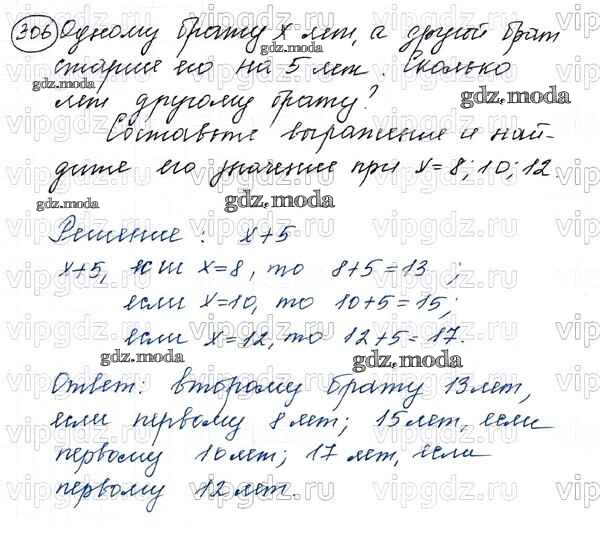 306 Одному брату x лет, а другой брат
старше его на 5 лет. Сколько
лет другому брату?
Составьте выражение и най-
дите его значение при x=8; 10; 12.
Решение: x+5
x+5, если x=8, то 8+5=13;
если x=10, то 10+5=15;
если x=12, то 12+5=17.
Ответ: второму брату 13 лет,
если первому 8 лет; 15 лет, если
первому 10 лет; 17 лет, если
первому 12 лет.
gdz.moda
vipgdz.ru